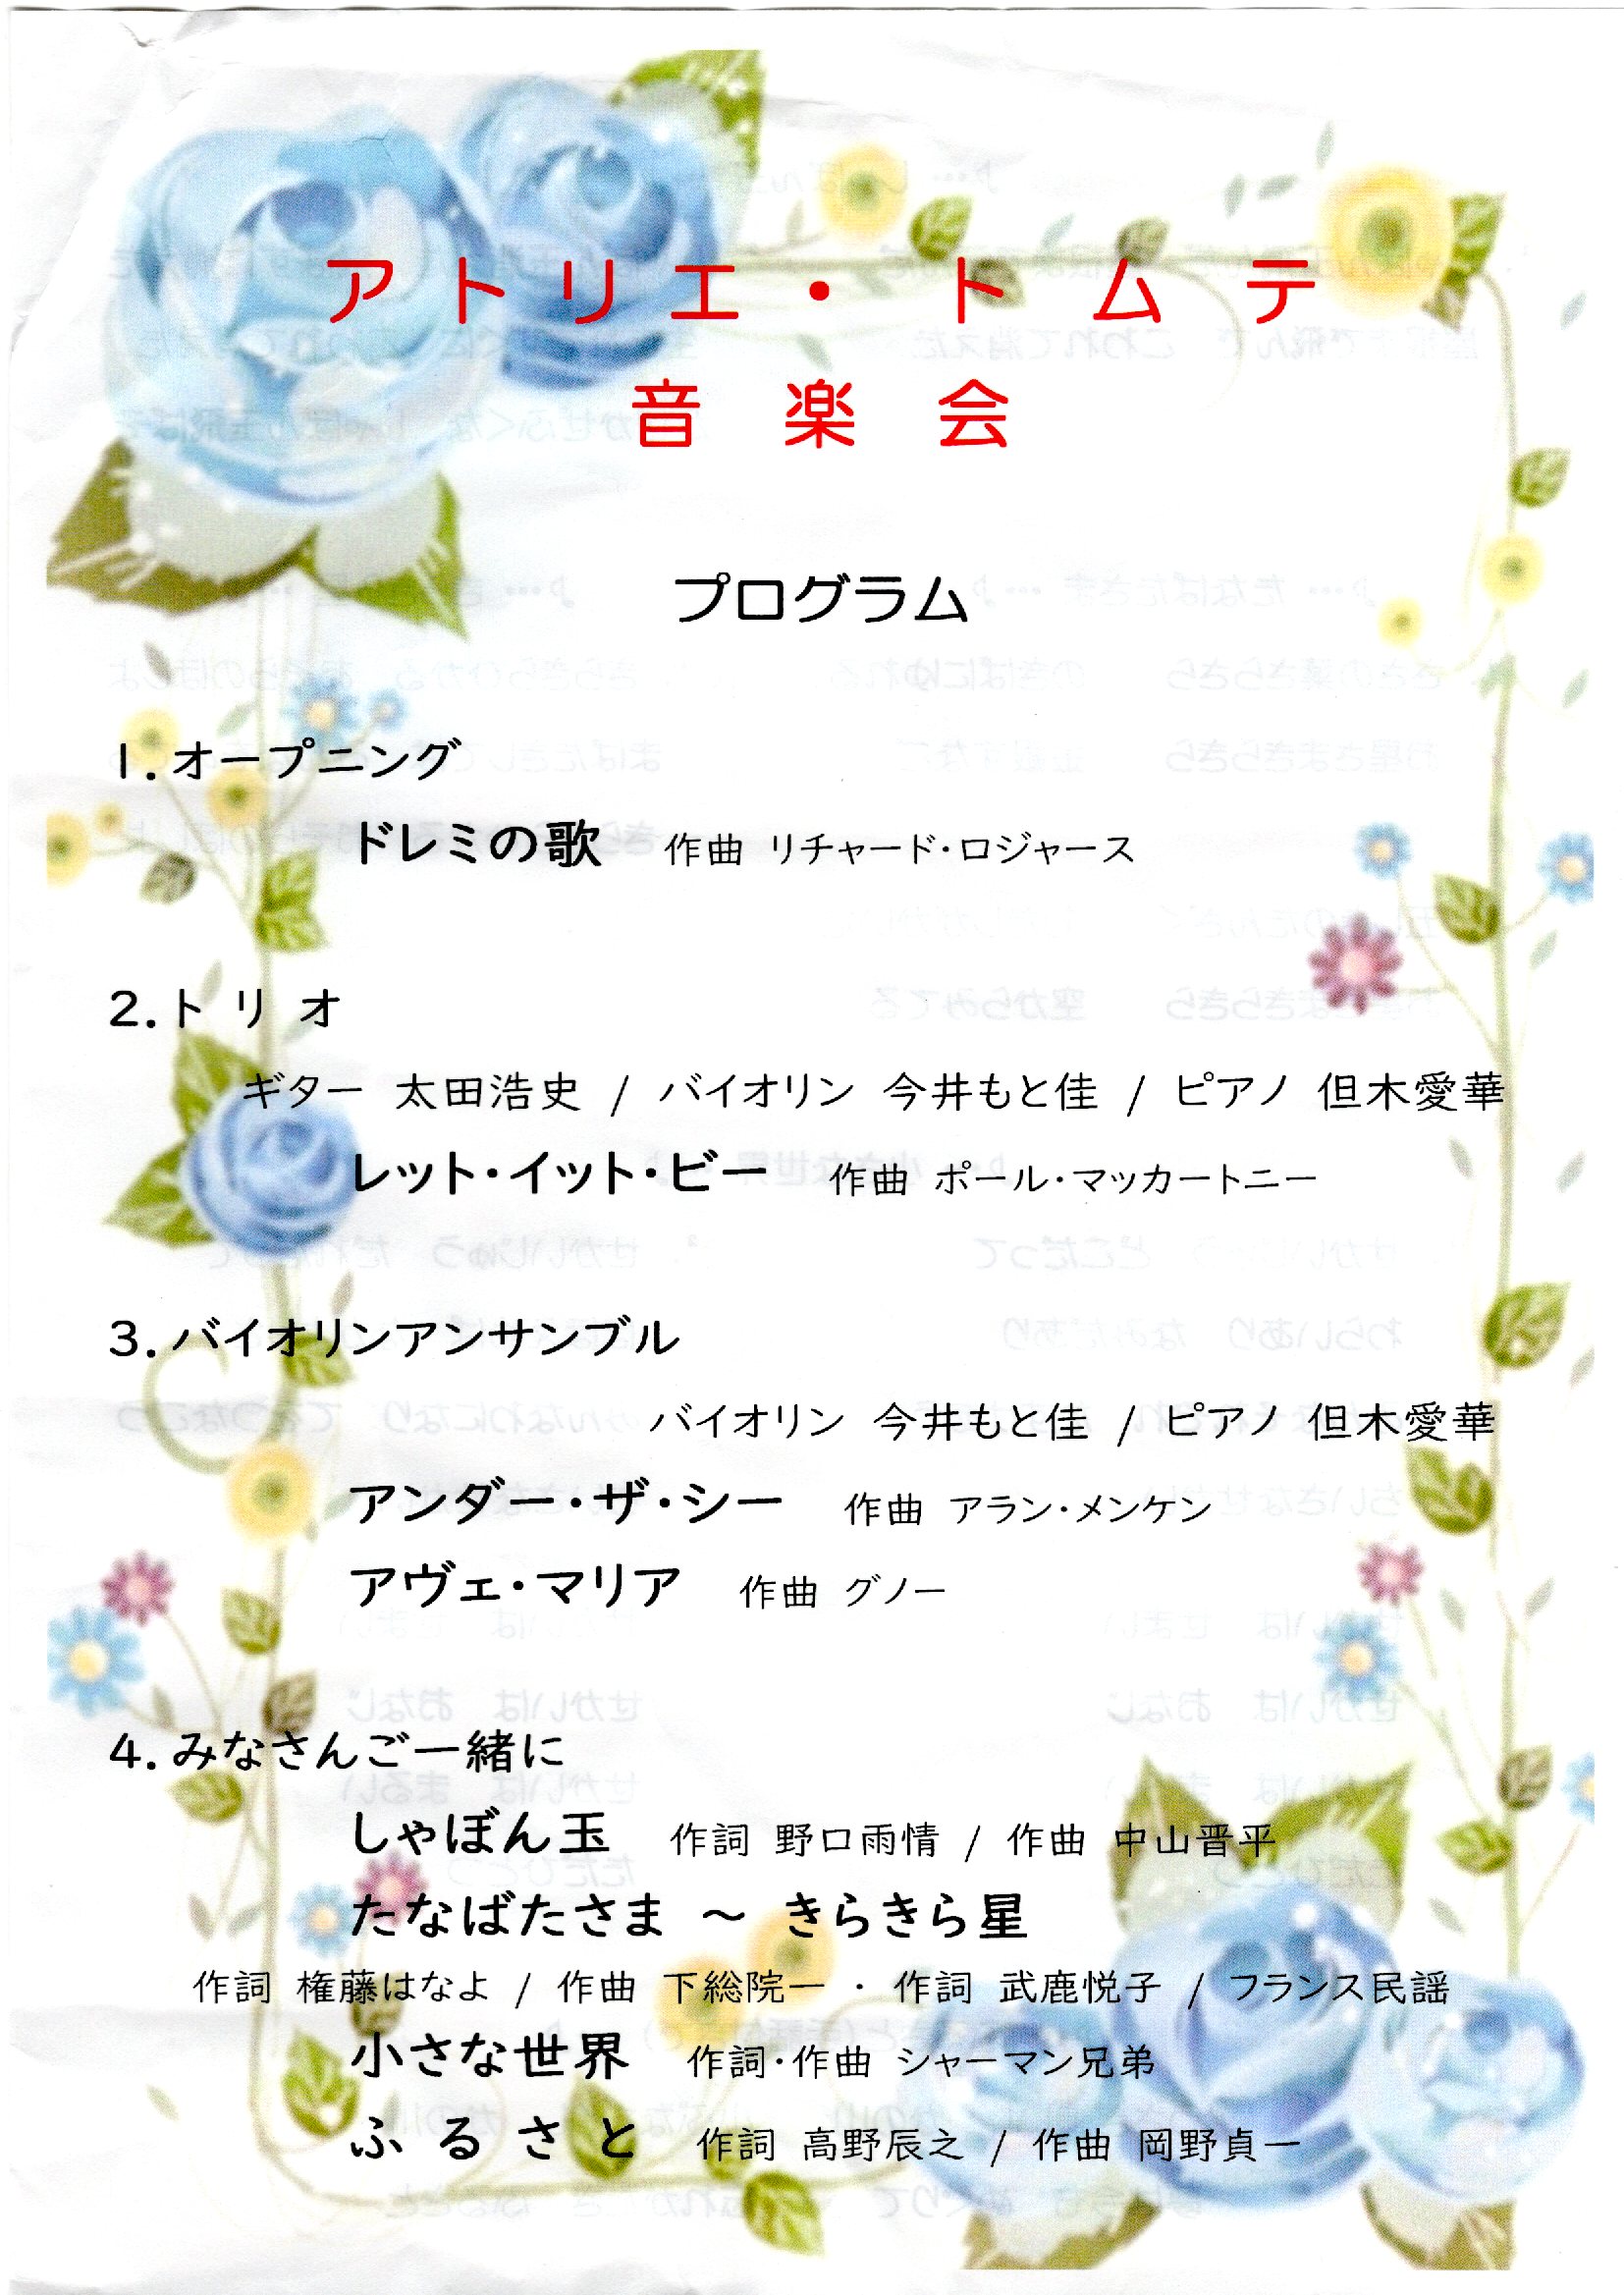 アトリエ・トムテ
音楽会
プログラム
1.オープニング
ドレミの歌 作曲 リチャード・ロジャース
2.トリオ
ギター 太田浩史 / バイオリン 今井もと佳 / ピアノ 但木愛華
レット・イット・ビー 作曲 ポール・マッカートニー
3.バイオリンアンサンブル
バイオリン 今井もと佳 / ピアノ 但木愛華
アンダー・ザ・シー 作曲 アラン・メンケン
アヴェ・マリア 作曲 グノー
4.みなさんご一緒に
しゃぼん玉 作詞 野口雨情 / 作曲 中山晋平
たなばたさま ～ きらきら星
作詞 権藤はなよ / 作曲 下総院一 ・ 作詞 武鹿悦子 / フランス民謡
小さな世界 作詞・作曲 シャーマン兄弟
ふるさと 作詞 高野辰之 / 作曲 岡野貞一